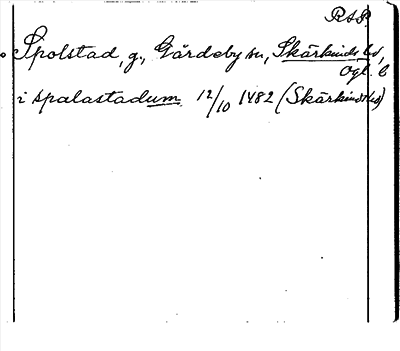 RSP
Spolstad, g., Gårdeby sn, Skärkinds hd,
Ögl. C
i spalastadum 12/10 1482 (Skärkinds hd)